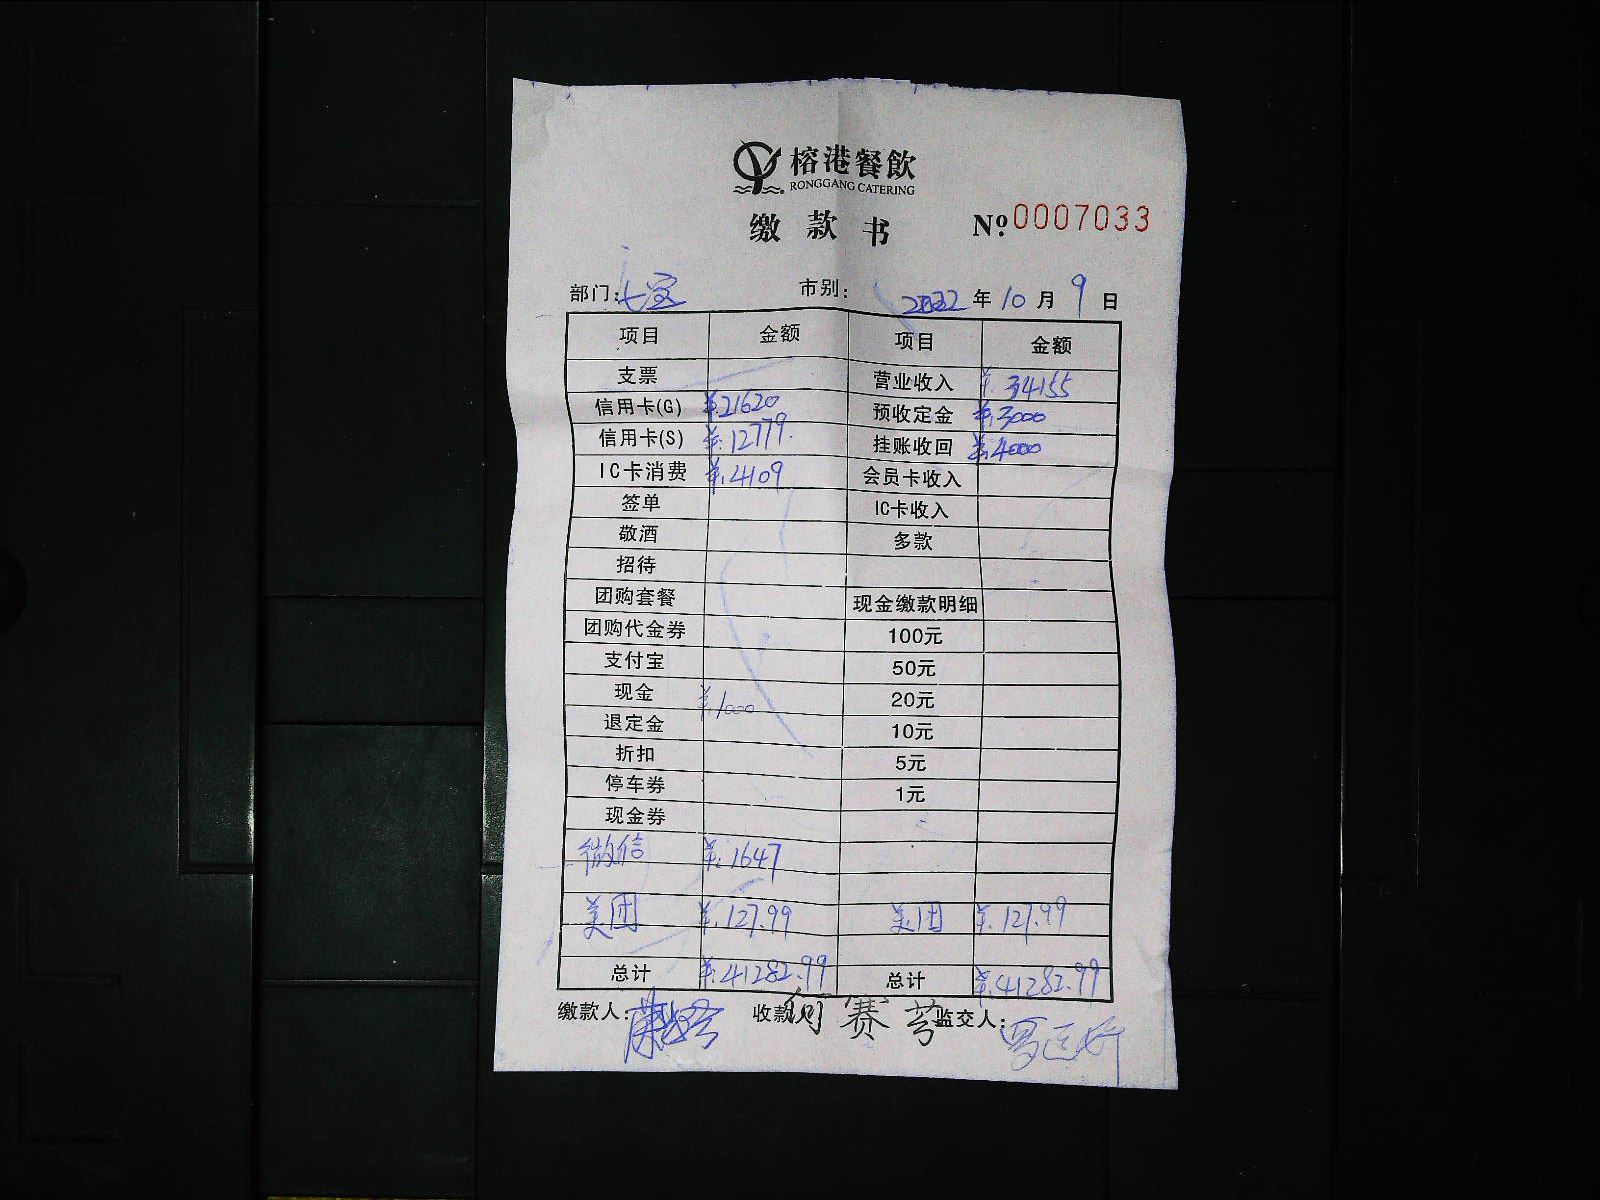 榕港餐飲
RONGGANG CATERING
缴款书 №.0007033
部门:七宝 市别: 2022年10月9日
项目 金额 项目 金额
支票 营业收入 ¥.34155
信用卡(G) ¥.21620 预收定金 ¥.3000
信用卡(S) ¥.12779. 挂账收回 ¥.4000
IC卡消费 ¥.4109 会员卡收入
签单 IC卡收入
敬酒 多款
招待
团购套餐 现金缴款明细
团购代金券 100元
支付宝 50元
现金 ¥.1000 20元
退定金 10元
折扣 5元
停车券 1元
现金券
微信 ¥.1647
美团 ¥.127.99 美团 ¥.127.99
总计 ¥.41282.99 总计 ¥.41282.99
缴款人: 收款人 何赛芳 监交人: